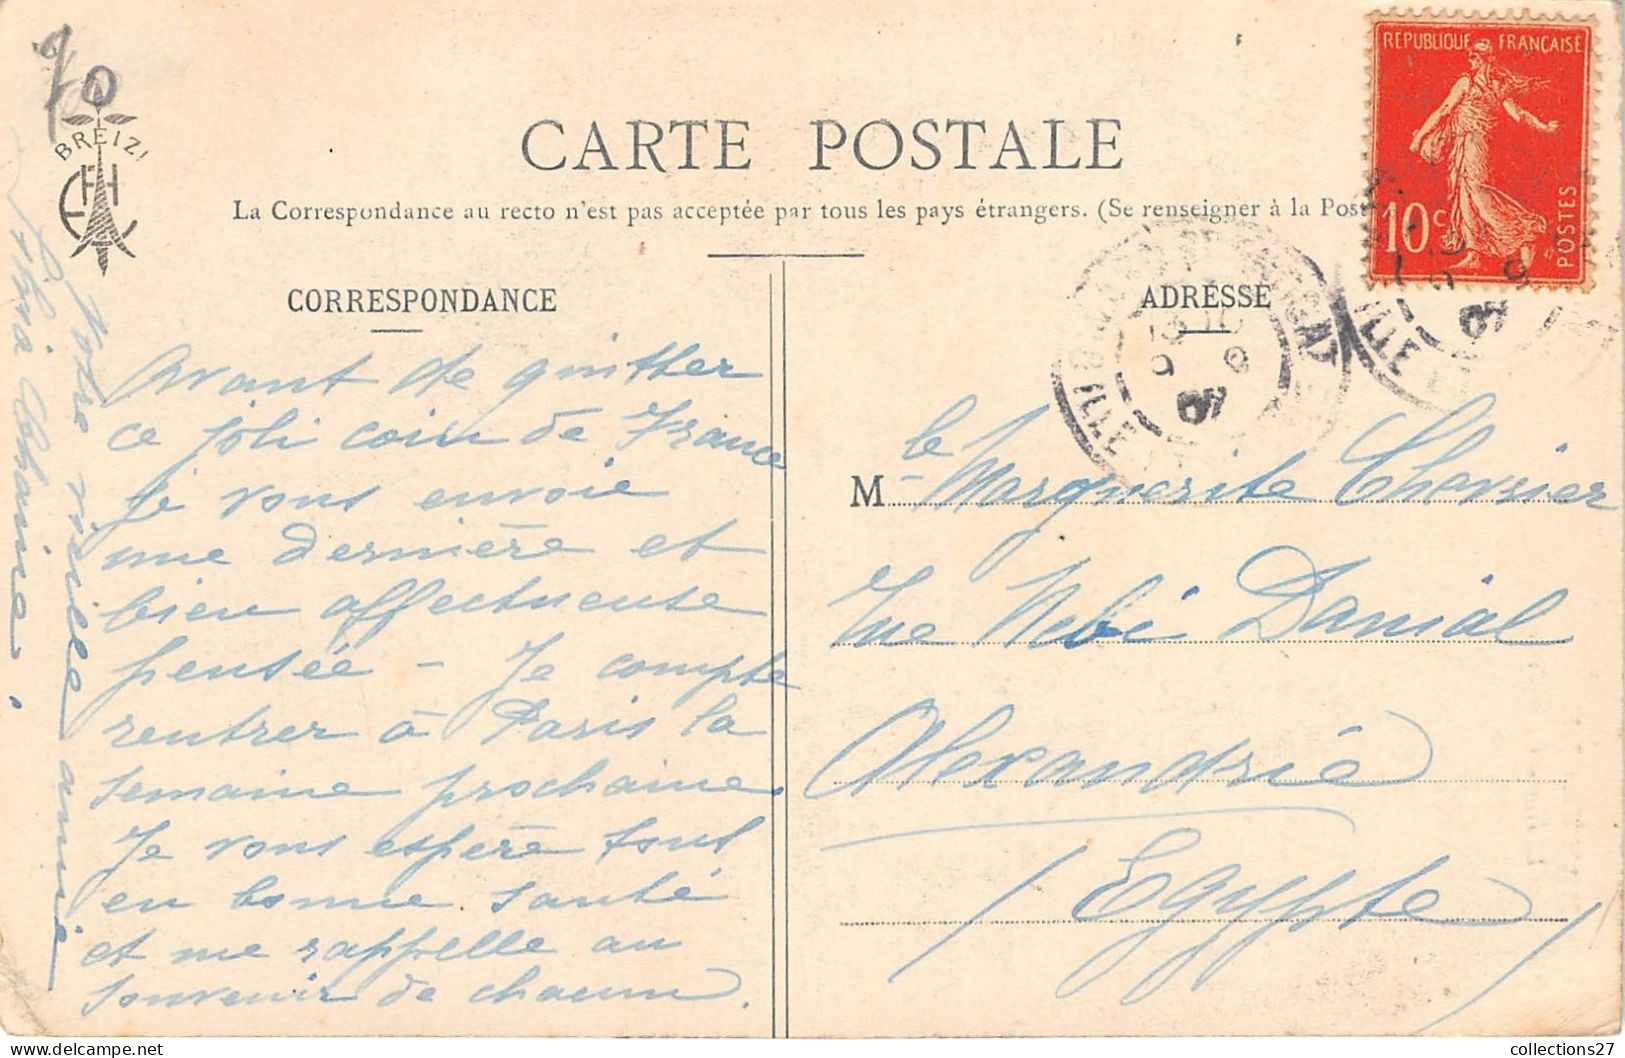 70
BREIZ!
CARTE POSTALE
La Correspondance au recto n'est pas acceptée par tous les pays étrangers. (Se renseigner à la Post
RÉPUBLIQUE FRANÇAISE
10c
POSTES
CORRESPONDANCE
ADRESSE
ILLE
07
ILLE
07
avant de quitter
ce joli coin de France
Je vous envoie
une dernière et
bien affectueuse
pensée - Je compte
rentrer à Paris la
semaine prochaine
Je vous espère tous
en bonne santé
et me rappelle au
souvenir de chacun.
Votre vieille amie
M le Marguerite Chevrier
rue Nebi Danial
Alexandrie
Egypte
collections27